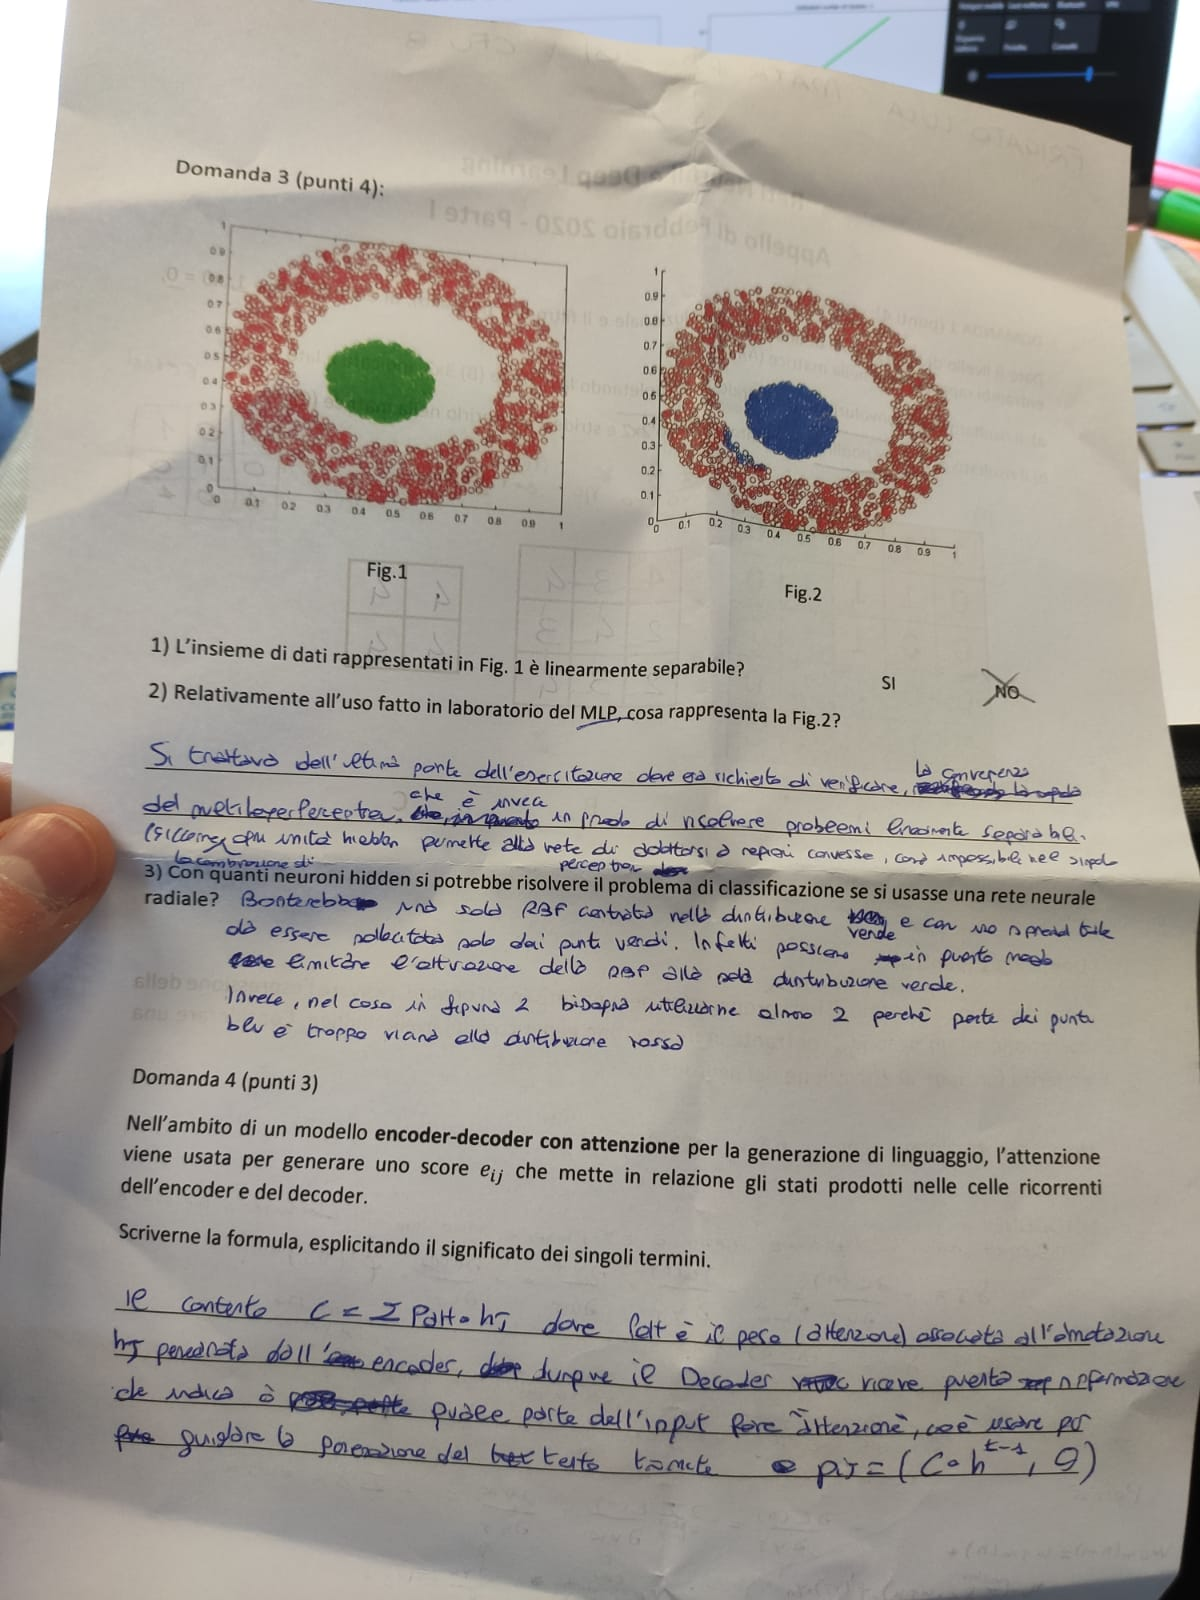 Domanda 3 (punti 4):
1
0.9
0.8
0.7
0.6
0.5
0.4
0.3
0.2
0.1
0
0 0.1 0.2 0.3 0.4 0.5 0.6 0.7 0.8 0.9 1
1
0.9
0.8
0.7
0.6
0.6
0.4
0.3
0.2
0.1
0
0 0.1 0.2 0.3 0.4 0.5 0.6 0.7 0.8 0.9 1
Fig.1
Fig.2
1) L'insieme di dati rappresentati in Fig. 1 è linearmente separabile?
SI NO
2) Relativamente all'uso fatto in laboratorio del MLP, cosa rappresenta la Fig.2?
Si trattava dell'ultima parte dell'esercitazione dove era richiesto di verificare, la convergenza
del multilayer Perceptron, che è invece in grado di risolvere problemi linearmente separabili.
(siccome ogni unità hidden permette alla rete di adattarsi a regioni convesse, cosa impossibile nel singolo
la combinazione di perceptron
3) Con quanti neuroni hidden si potrebbe risolvere il problema di classificazione se si usasse una rete neurale
radiale? Basterebbe una sola RBF centrata nella distribuzione verde e con uno spread tale
da essere sollecitata solo dai punti verdi. Infatti possiamo in questo modo
limitare l'attivazione della RBF alla sola distribuzione verde.
Invece, nel caso in figura 2 bisogna utilizzarne almeno 2 perchè parte dei punti
blu è troppo vicina alla distribuzione rossa
Domanda 4 (punti 3)
Nell'ambito di un modello encoder-decoder con attenzione per la generazione di linguaggio, l'attenzione
viene usata per generare uno score eij che mette in relazione gli stati prodotti nelle celle ricorrenti
dell'encoder e del decoder.
Scriverne la formula, esplicitando il significato dei singoli termini.
Il contesto C = Σ hJ dove è il peso (attenzione) associata all'annotazione
hJ generata dall'encoder, dunque il Decoder riceve questa informazione
che indica a quale parte dell'input fare "Attenzione", cioè usare per
guidare la generazione del testo tramite = (C∘h^t-1, )